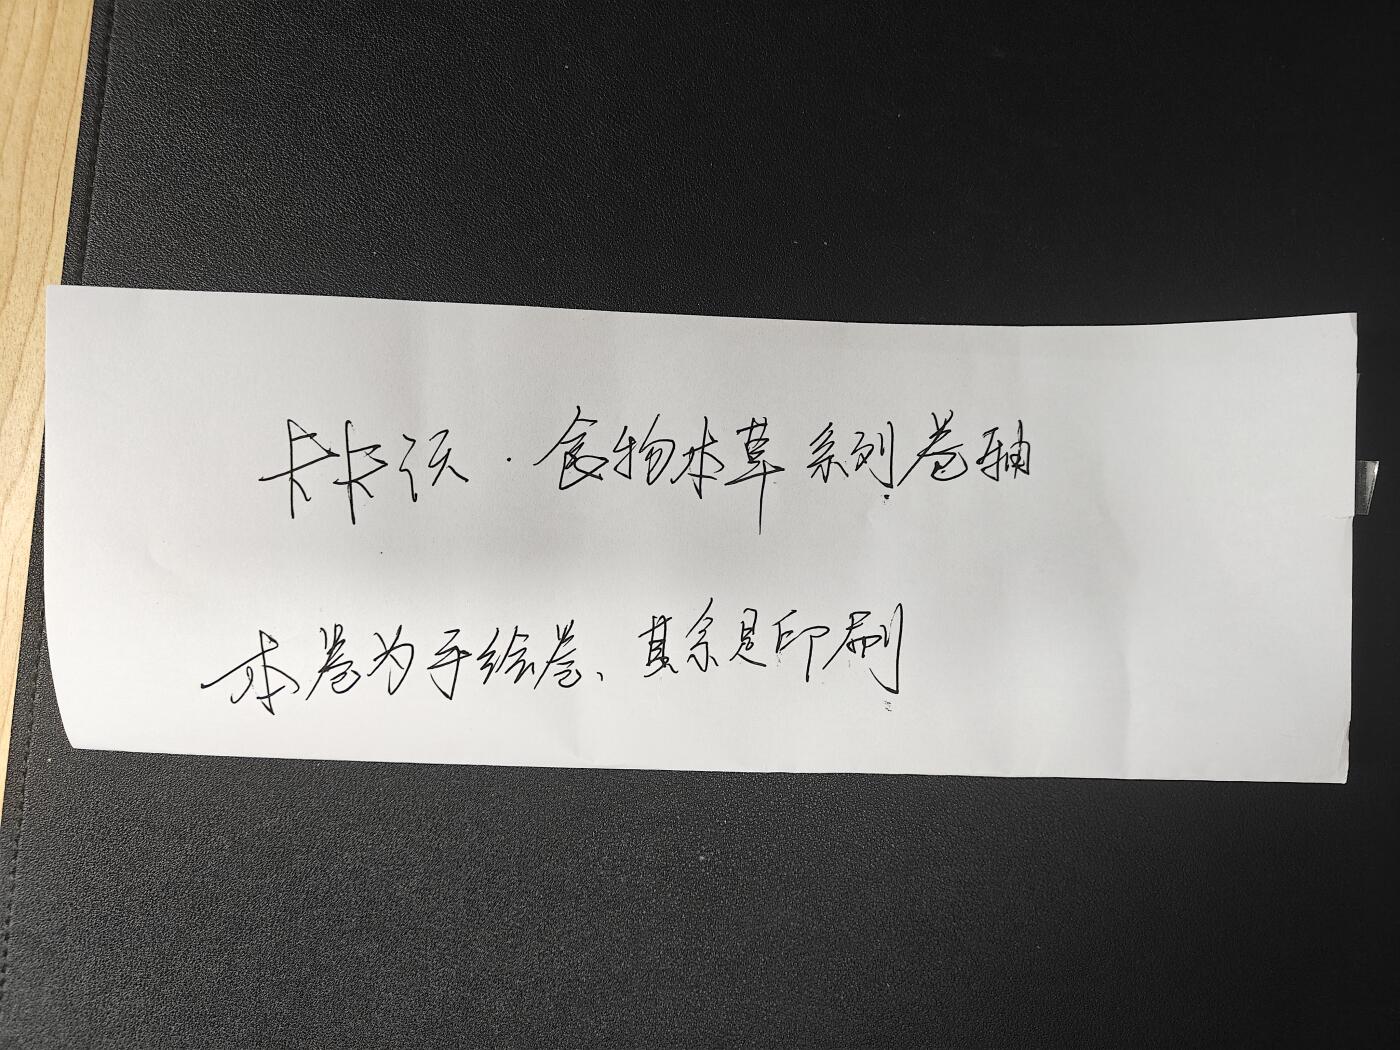 卡卡沃·食物本草系列卷轴
本卷为手绘卷、其余是印刷